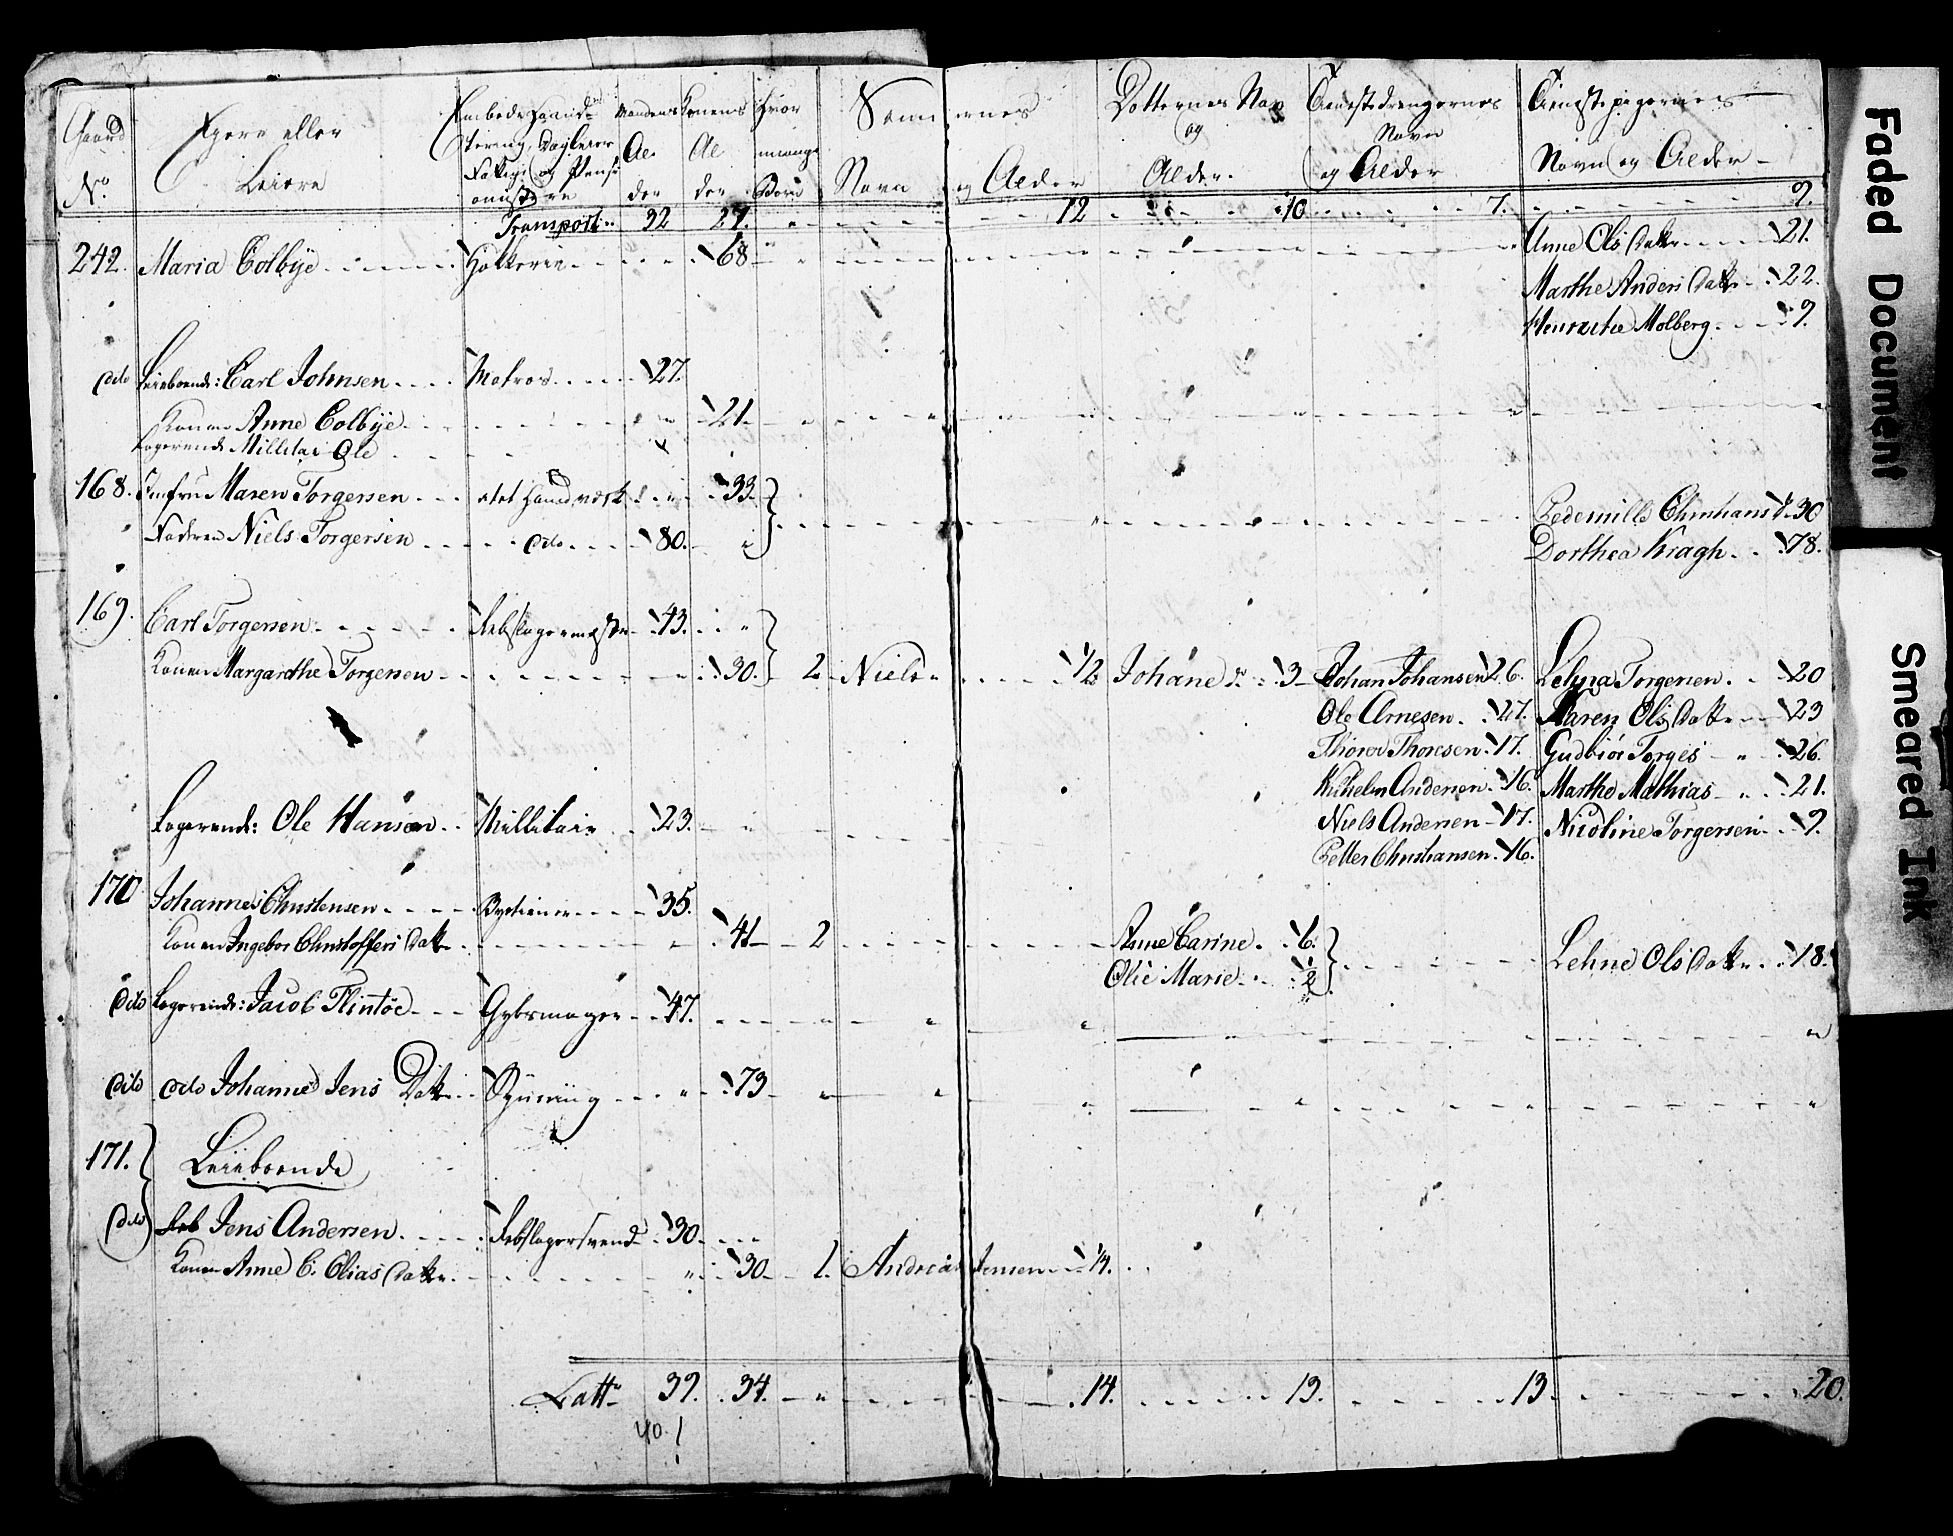 Gaard No
Ejere eller Leiere
Mandens Alder
Konens Alder
Hvor mange Børn
Sønnernes Navn og Alder
Dotternes Navn og Alder
Tienestedrengernes Navn og Alder
Tienestepigernes Navn og Alder
Transport 32 27. 12 10 7. 9.
242. Maria Colbye Høkkerie 68 Anne Ols Datter 21.
Marthe Anders Datter 22.
Molberg 9.
dito Leieboende: Carl Johnsen Matros 27.
Konen Anne Colbye 21
Logerende Millitair Ole
168. Jomfru Maren Torgersen 33 Christians 30
Faderen Niels Torgersen dito 80. Dorthea Kragh 78.
169. Carl Torgersen Rebslagermester 43.
Konen Margarethe Torgersen 30. 2 Niels 1/2 Johane 3 Johan Johansen 26. Lehna Torgersen 20
Ole Arnesen 27. Maren Ols Datter 23
Thoresen 17. Gudbiør Torges " 26.
Wilhelm Andersen 16. Marthe Mathias " 21.
Logerende: Ole Hansen Millitair 23. Niels Andersen 17. Nicoline Torgersen 9.
Petter Christiansen 16.
170 Johannes Christensen Bytiener 35.
Konen Ingebor Christoffers Datter 41 2 Anne Carine 6. Lehne Ols Datter 18.
Olie Marie 1/2
Dito Logerende: Jacob Flintøe Gybsmager 47.
Dito dito Johanne Jens Datter Spinning 73
171. Leieboende
dito Jens Andersen Rebslagersvend 30
Konen Anne C. Elias Datter 30 1. Andreas Jensen 1/4.
Latt 39. 34. 14. 13. 13. 20.
40!
Faded Document
Smeared Ink